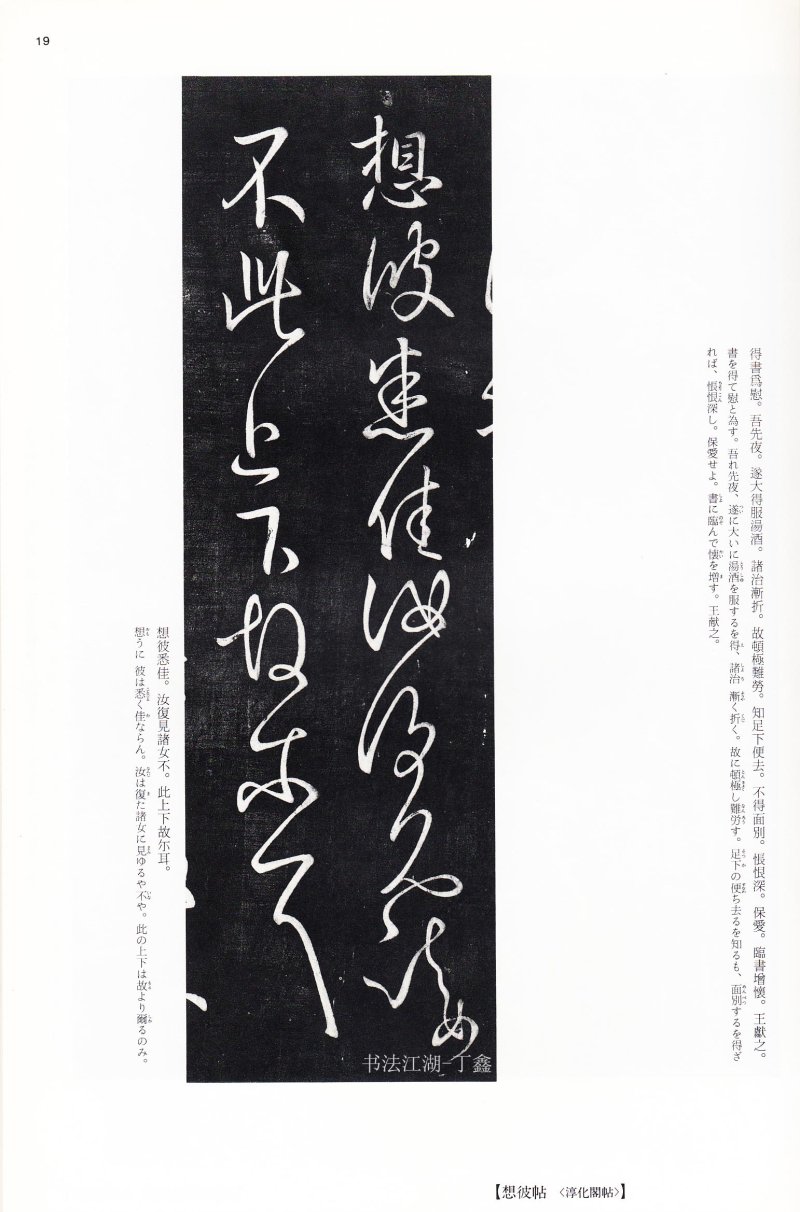 19
得書爲慰。吾先夜。遂大得服湯酒。諸治漸折。故頓極難勞。知足下便去。不得面別。悵恨深。保愛。臨書增懷。王獻之。
書を得て慰と為す。吾れ先夜、遂に大いに湯酒を服するを得、諸治 漸く折く。故に頓極し難労す。足下の便ち去るを知るも、面別するを得ざ
れば、悵恨深し。保愛せよ。書に臨んで懐を増す。王献之。
想彼悉佳汝復見諸女
不此上下故尓耳
想彼悉佳。汝復見諸女不。此上下故尓耳。
想うに 彼は悉く佳ならん。汝は復た諸女に見ゆるや不や。此の上下は故より爾るのみ。
书法江湖-丁鑫
【想彼帖 〈淳化閣帖〉】